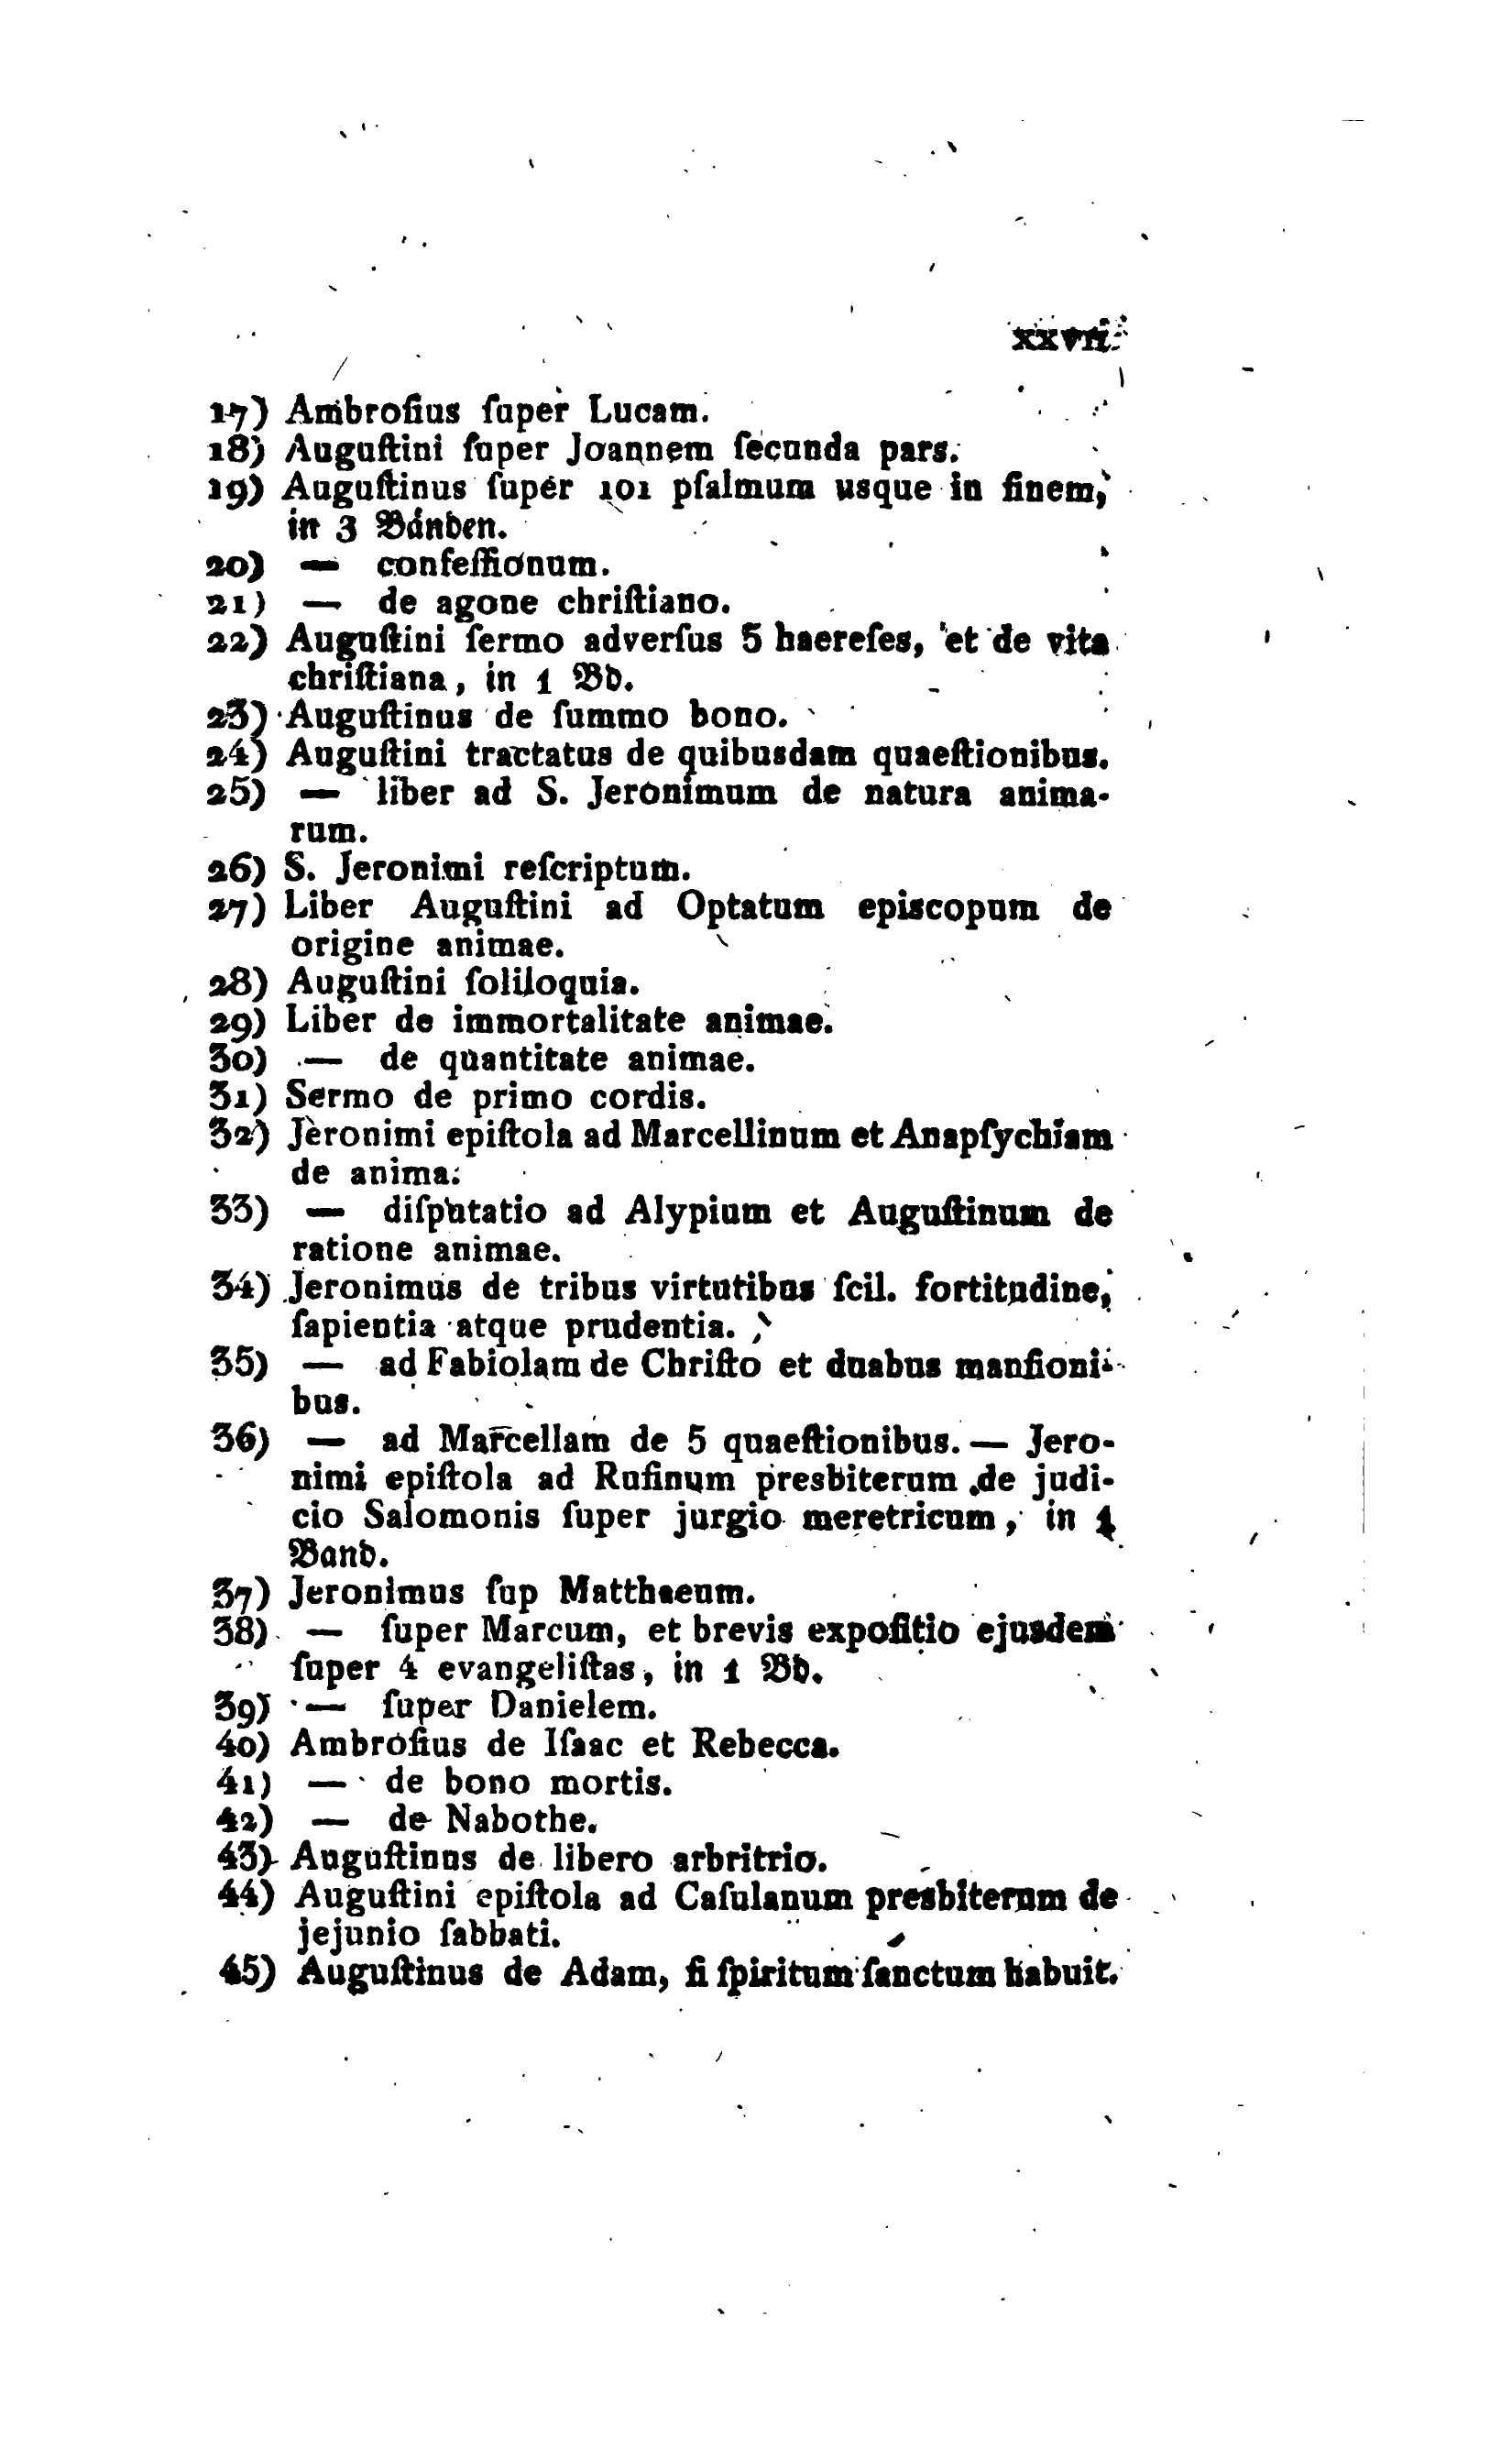 xxvii
17) Ambroſius ſuper Lucam.
18) Auguſtini ſuper Joannem ſecunda pars.
19) Auguſtinus ſuper 101 pſalmum usque in finem,
in 3 Bänden.
20) — confeſſionum.
21) — de agone chriſtiano.
22) Auguſtini ſermo adverſus 5 haereſes, et de vita
chriſtiana, in 1 Bd.
23) Auguſtinus de ſummo bono.
24) Auguſtini tractatus de quibusdam quaeſtionibus.
25) — liber ad S. Jeronimum de natura anima-
rum.
26) S. Jeronimi reſcriptum.
27) Liber Auguſtini ad Optatum episcopum de
origine animae.
28) Auguſtini ſoliloquia.
29) Liber de immortalitate animae.
30) — de quantitate animae.
31) Sermo de primo cordis.
32) Jeronimi epiſtola ad Marcellinum et Anapſychiam
de anima.
33) — diſputatio ad Alypium et Auguſtinum de
ratione animae.
34) Jeronimus de tribus virtutibus ſcil. fortitudine,
ſapientia atque prudentia.
35) — ad Fabiolam de Chriſto et duabus manſioni-
bus.
36) — ad Marcellam de 5 quaeſtionibus. — Jero-
nimi epiſtola ad Rufinum presbiterum de judi-
cio Salomonis ſuper jurgio meretricum, in 1
Band.
37) Jeronimus ſup Matthaeum.
38) — ſuper Marcum, et brevis expoſitio ejusdem
ſuper 4 evangeliſtas, in 1 Bd.
39) — ſuper Danielem.
40) Ambroſius de Iſaac et Rebecca.
41) — de bono mortis.
42) — de Nabothe.
43) Auguſtinus de libero arbritrio.
44) Auguſtini epiſtola ad Caſulanum presbiterum de
jejunio ſabbati.
45) Auguſtinus de Adam, ſi ſpiritum ſanctum habuit.